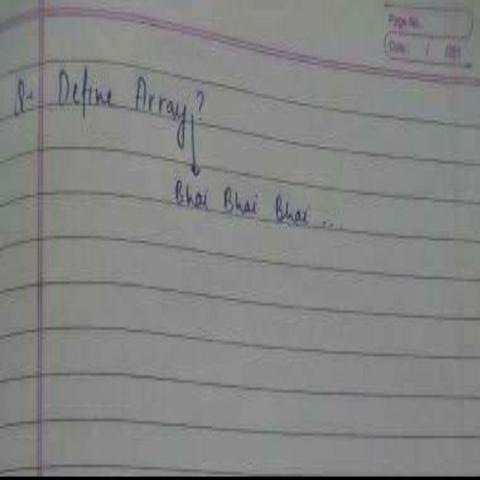 Page No.
Date: / /201
Q. Define Array?
Bhai Bhai Bhai ...